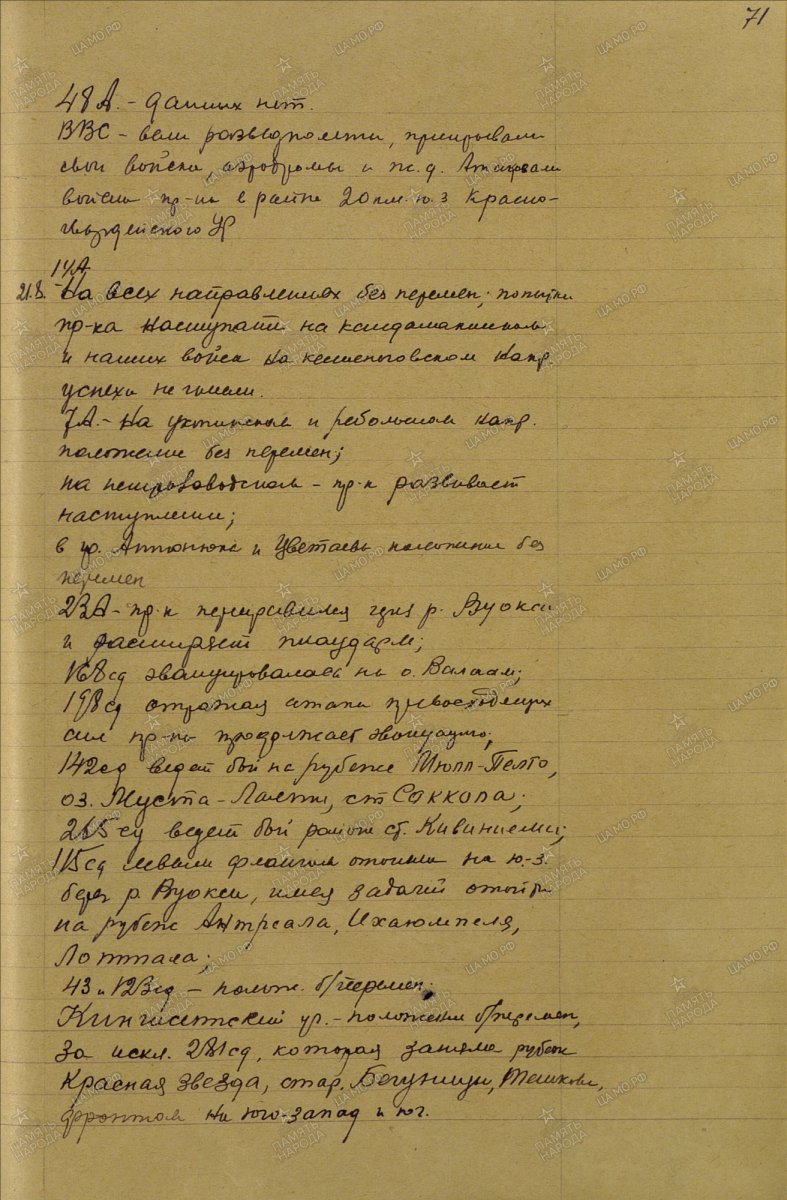 71
48А. - данных нет.
ВВС - вели разведполеты, прикрывали
свои войска, аэродромы и ж.д. Атаковали
войска пр-ка в районе 20 км. ю.з Красно-
гвардейского УР
14А
21.8. На всех направлениях без перемен; попытки
пр-ка наступать на кандалакшском
и наших войск на кестеньговском напр.
успеха не имели.
7А. - На ухтинском и ребольском напр.
положение без перемен;
на петрозаводском - пр-к развивает
наступление;
в гр. Антонюка и Цветаева положение без
перемен
23А - пр-к переправился через р. Вуокси
и расширяет плацдарм;
168сд эвакуировалась на о. Валаам;
198сд отражая атаки превосходящих
сил пр-ка продолжает эвакуацию;
142сд ведет бой на рубеже Мюлл-Пелто,
оз. Муста-Лампи, ст Саккола;
265сд ведет бой район ст. Кивиниеми;
115сд левым флангом отошла на ю.-з.
берег р. Вуокси, имея задачей отойти
на рубеж Антреала, Ихаюмпеля,
Лоттала;
43 и 123сд - полож. б/перемен.
Кингисепский ур. - положение б/перемен,
за искл. 281сд, которая заняла рубеж
Красная звезда, стар. Бегуницы, Тешково,
фронтом на юго-запад и юг.